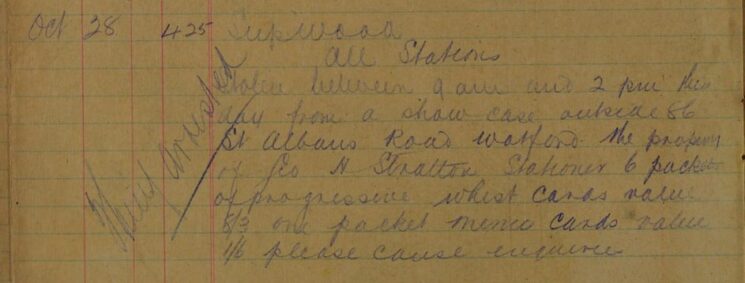 Oct 28 4.25 Sup Wood
All Stations
Stolen between 9 am and 2 pm this
day from a show case outside 86
St Albans Road Watford the property
of Geo H Stratton Stationer 6 packets
of progressive whist cards value
8/3 one packet menu cards value
1/6 please cause enquiries
Thief Arrested